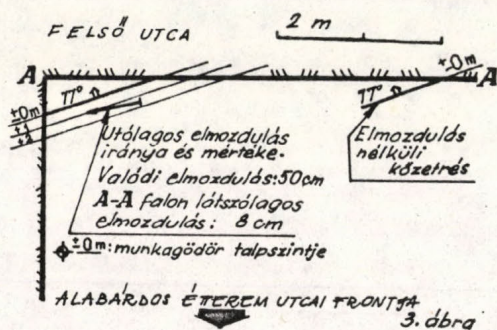 FELSŐ UTCA
2 m
±0m
A
A
77°
77°
±0m
±1
±2
Utólagos elmozdulás
iránya és mértéke.
Valódi elmozdulás: 50cm
A-A falon látszólagos
elmozdulás: 8 cm
Elmozdulás
nélküli
kőzetrés
±0m: munkagödör talpszintje
ALABÁRDOS ÉTTEREM UTCAI FRONTJA
3. ábra